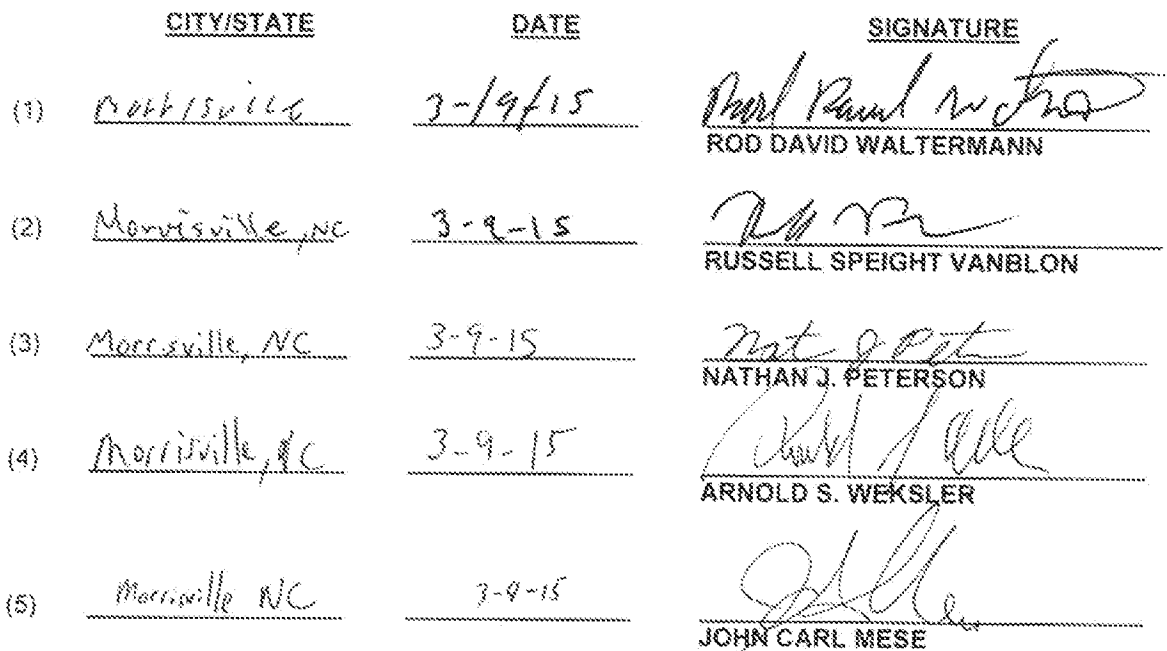 CITY/STATE DATE SIGNATURE
(1) Morrisville 3-/9/15
ROD DAVID WALTERMANN
(2) Morrisville, NC 3-9-15
RUSSELL SPEIGHT VANBLON
(3) Morrisville, NC 3-9-15 Nat J Pet
NATHAN J. PETERSON
(4) Morrisville, NC 3-9-15
ARNOLD S. WEKSLER
(5) Morrisville NC 3-9-15
JOHN CARL MESE